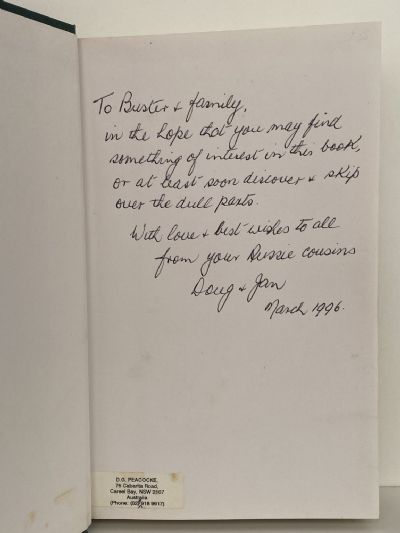 To Buster & family,
in the hope that you may find
something of interest in this book,
or at least soon discover & skip
over the dull parts.
With love & best wishes to all
from your Aussie cousins
Doug & Jan
March 1996.
D.G. PEACOCKE,
75 Cabarita Road,
Careel Bay, NSW 2107
Australia
(Phone: (02) 918 9617)